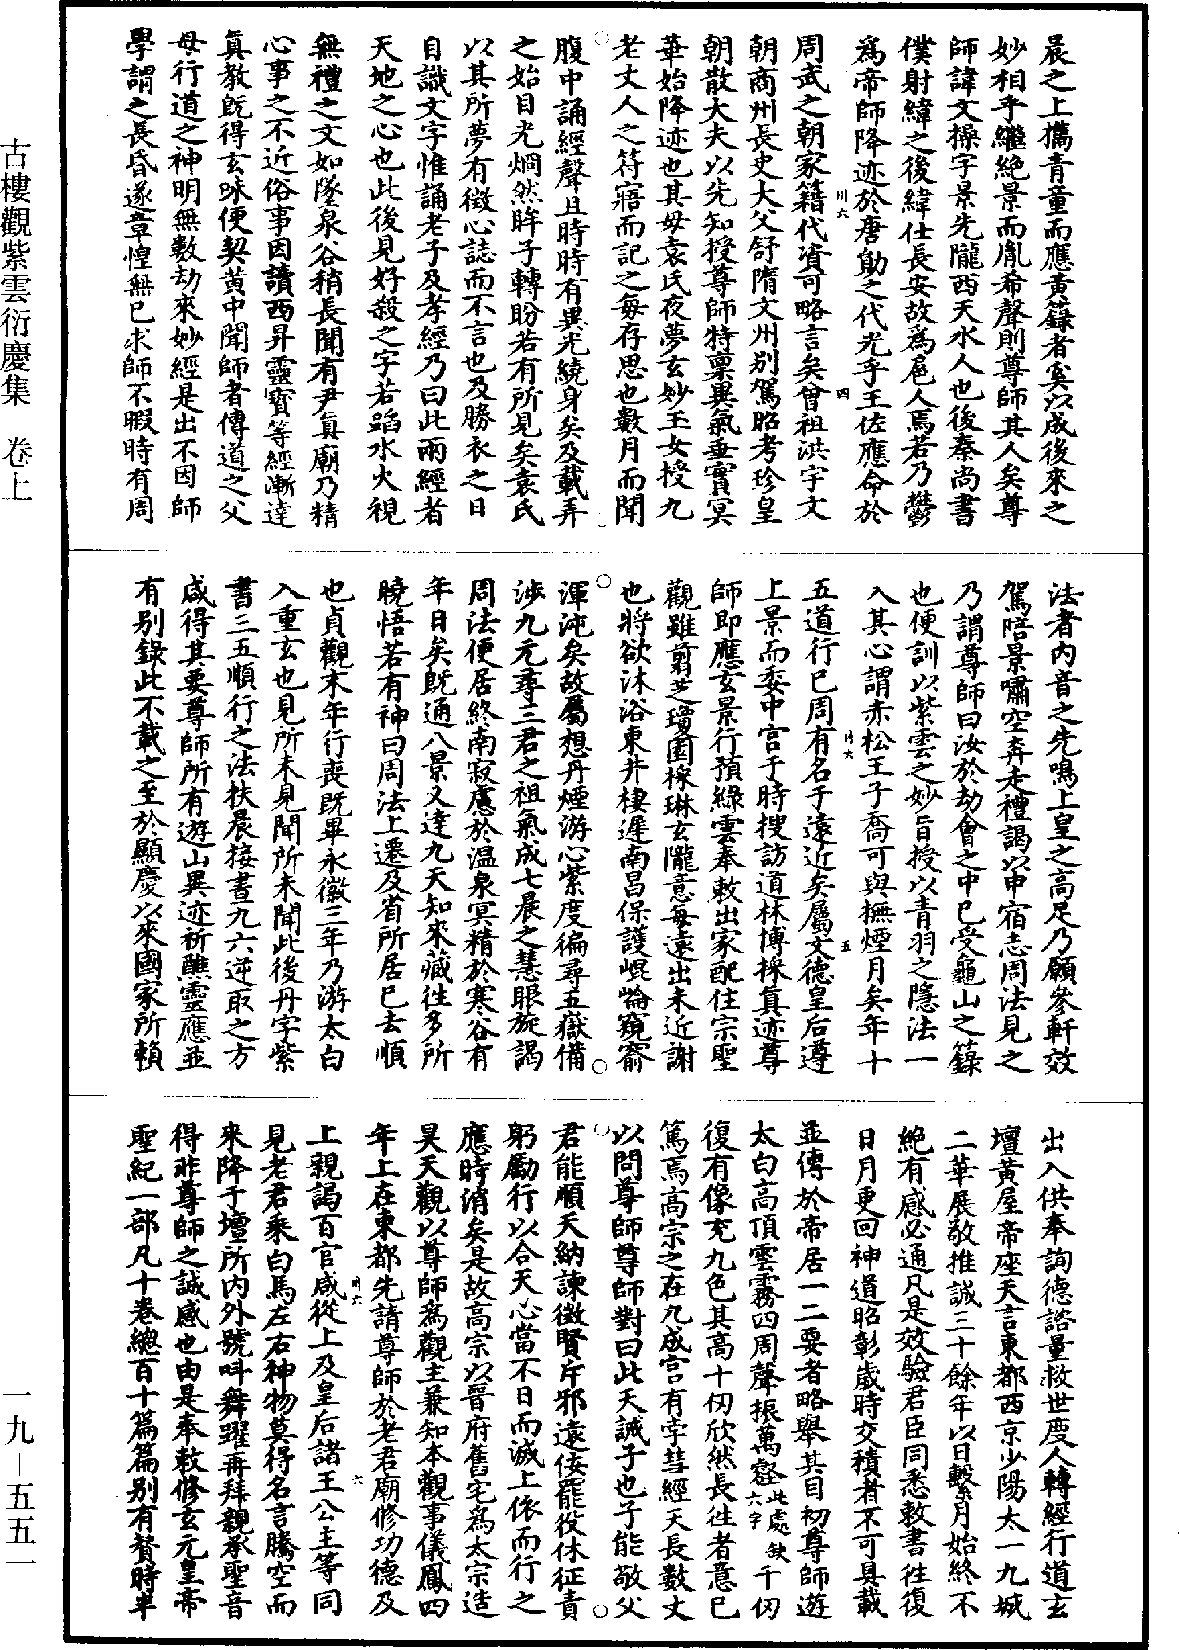 古樓觀紫雲衍慶集 卷上
一九—五五一
晨之上攜青童而應黃籙者奚以成後來之
妙相乎繼絕景而胤希聲則尊師其人矣尊
師諱文操字景先隴西天水人也後秦尚書
僕射緯之後緯仕長安故爲扈人焉若乃鬱
爲帝師降迹於唐勛之代光乎王佐應命於
周武之朝家籍代資可略言矣曾祖洪宇文
朝商州長史大父舒隋文州別駕昭考珍皇
朝散大夫以先知授尊師特稟異氣垂實冥
華始降迹也其母袁氏夜夢玄妙玉女授九
老丈人之符寤而記之每存思也數月而聞
腹中誦經聲且時時有異光繞身矣及載弄
之始目光烱然眸子轉盼若有所見矣袁氏
以其所夢有徵心誌而不言也及勝衣之日
自識文字惟誦老子及孝經乃曰此兩經者
天地之心也此後見好殺之字若蹈水火視
無禮之文如墜泉谷稍長聞有尹真廟乃精
心事之不近俗事因讀西昇靈寶等經漸達
真教旣得玄味便契黃中聞師者傳道之父
母行道之神明無數劫來妙經是出不因師
學謂之長昏遂章惶無已求師不暇時有周
法者內音之先鳴上皇之高足乃願參軒效
駕陪景嘯空奔走禮謁以申宿志周法見之
乃謂尊師曰汝於劫會之中已受龜山之籙
也便訓以紫雲之妙旨授以青羽之隱法一
入其心謂赤松王子喬可與撫煙月矣年十
五道行已周有名于遠近矣屬文德皇后遵
上景而委中宮于時搜訪道林博採真迹尊
師即應玄景行預綠雲奉敕出家配住宗聖
觀雖翦芝瓊圃採琳玄隴意每遠出未近謝
也將欲沐浴東井棲遲南昌保護崐崘窺窬
渾沌矣故屬想丹煙游心紫度徧尋五嶽備
涉九元尋二君之祖氣成七晨之慧眼旋謁
周法便居終南寂慮於温泉冥精於寒谷有
年日矣旣通八景又達九天知來藏往多所
曉悟若有神曰周法上遷及省所居已去順
也貞觀末年行喪旣畢永徽三年乃游太白
入重玄也見所未見聞所未聞此後丹字紫
書三五順行之法扶晨接晝九六逆取之方
咸得其要尊師所有遊山異迹祈醮靈應並
有別錄此不載之至於顯慶以來國家所賴
出入供奉詢德諮量救世度人轉經行道玄
壇黃屋帝座天言東都西京少陽太一九城
二華展敬推誠三十餘年以日繫月始終不
絕有感必通凡是效驗君臣同悉敕書往復
日月更回神道昭彰歲時交積者不可具載
並傳於帝居一二要者略舉其目初尊師遊
太白高頂雲霧四周聲振萬壑此處缺六字千仞
復有像充九色其高十仞欣然長往者意已
篤焉高宗之在九成宮有孛彗經天長數丈
以問尊師尊師對曰此天誡子也子能敬父
君能順天納諫徵賢斥邪遠佞罷役休征責
躬勵行以合天心當不日而滅上依而行之
應時消矣是故高宗以晉府舊宅爲太宗造
昊天觀以尊師爲觀主兼知本觀事儀鳳四
年上在東都先請尊師於老君廟修功德及
上親謁百官咸從上及皇后諸王公主等同
見老君乘白馬左右神物莫得名言騰空而
來降于壇所內外號呌舞躍再拜親承聖音
得非尊師之誠感也由是奉敕修玄元皇帝
聖紀一部凡十卷總百十篇篇別有贊時半